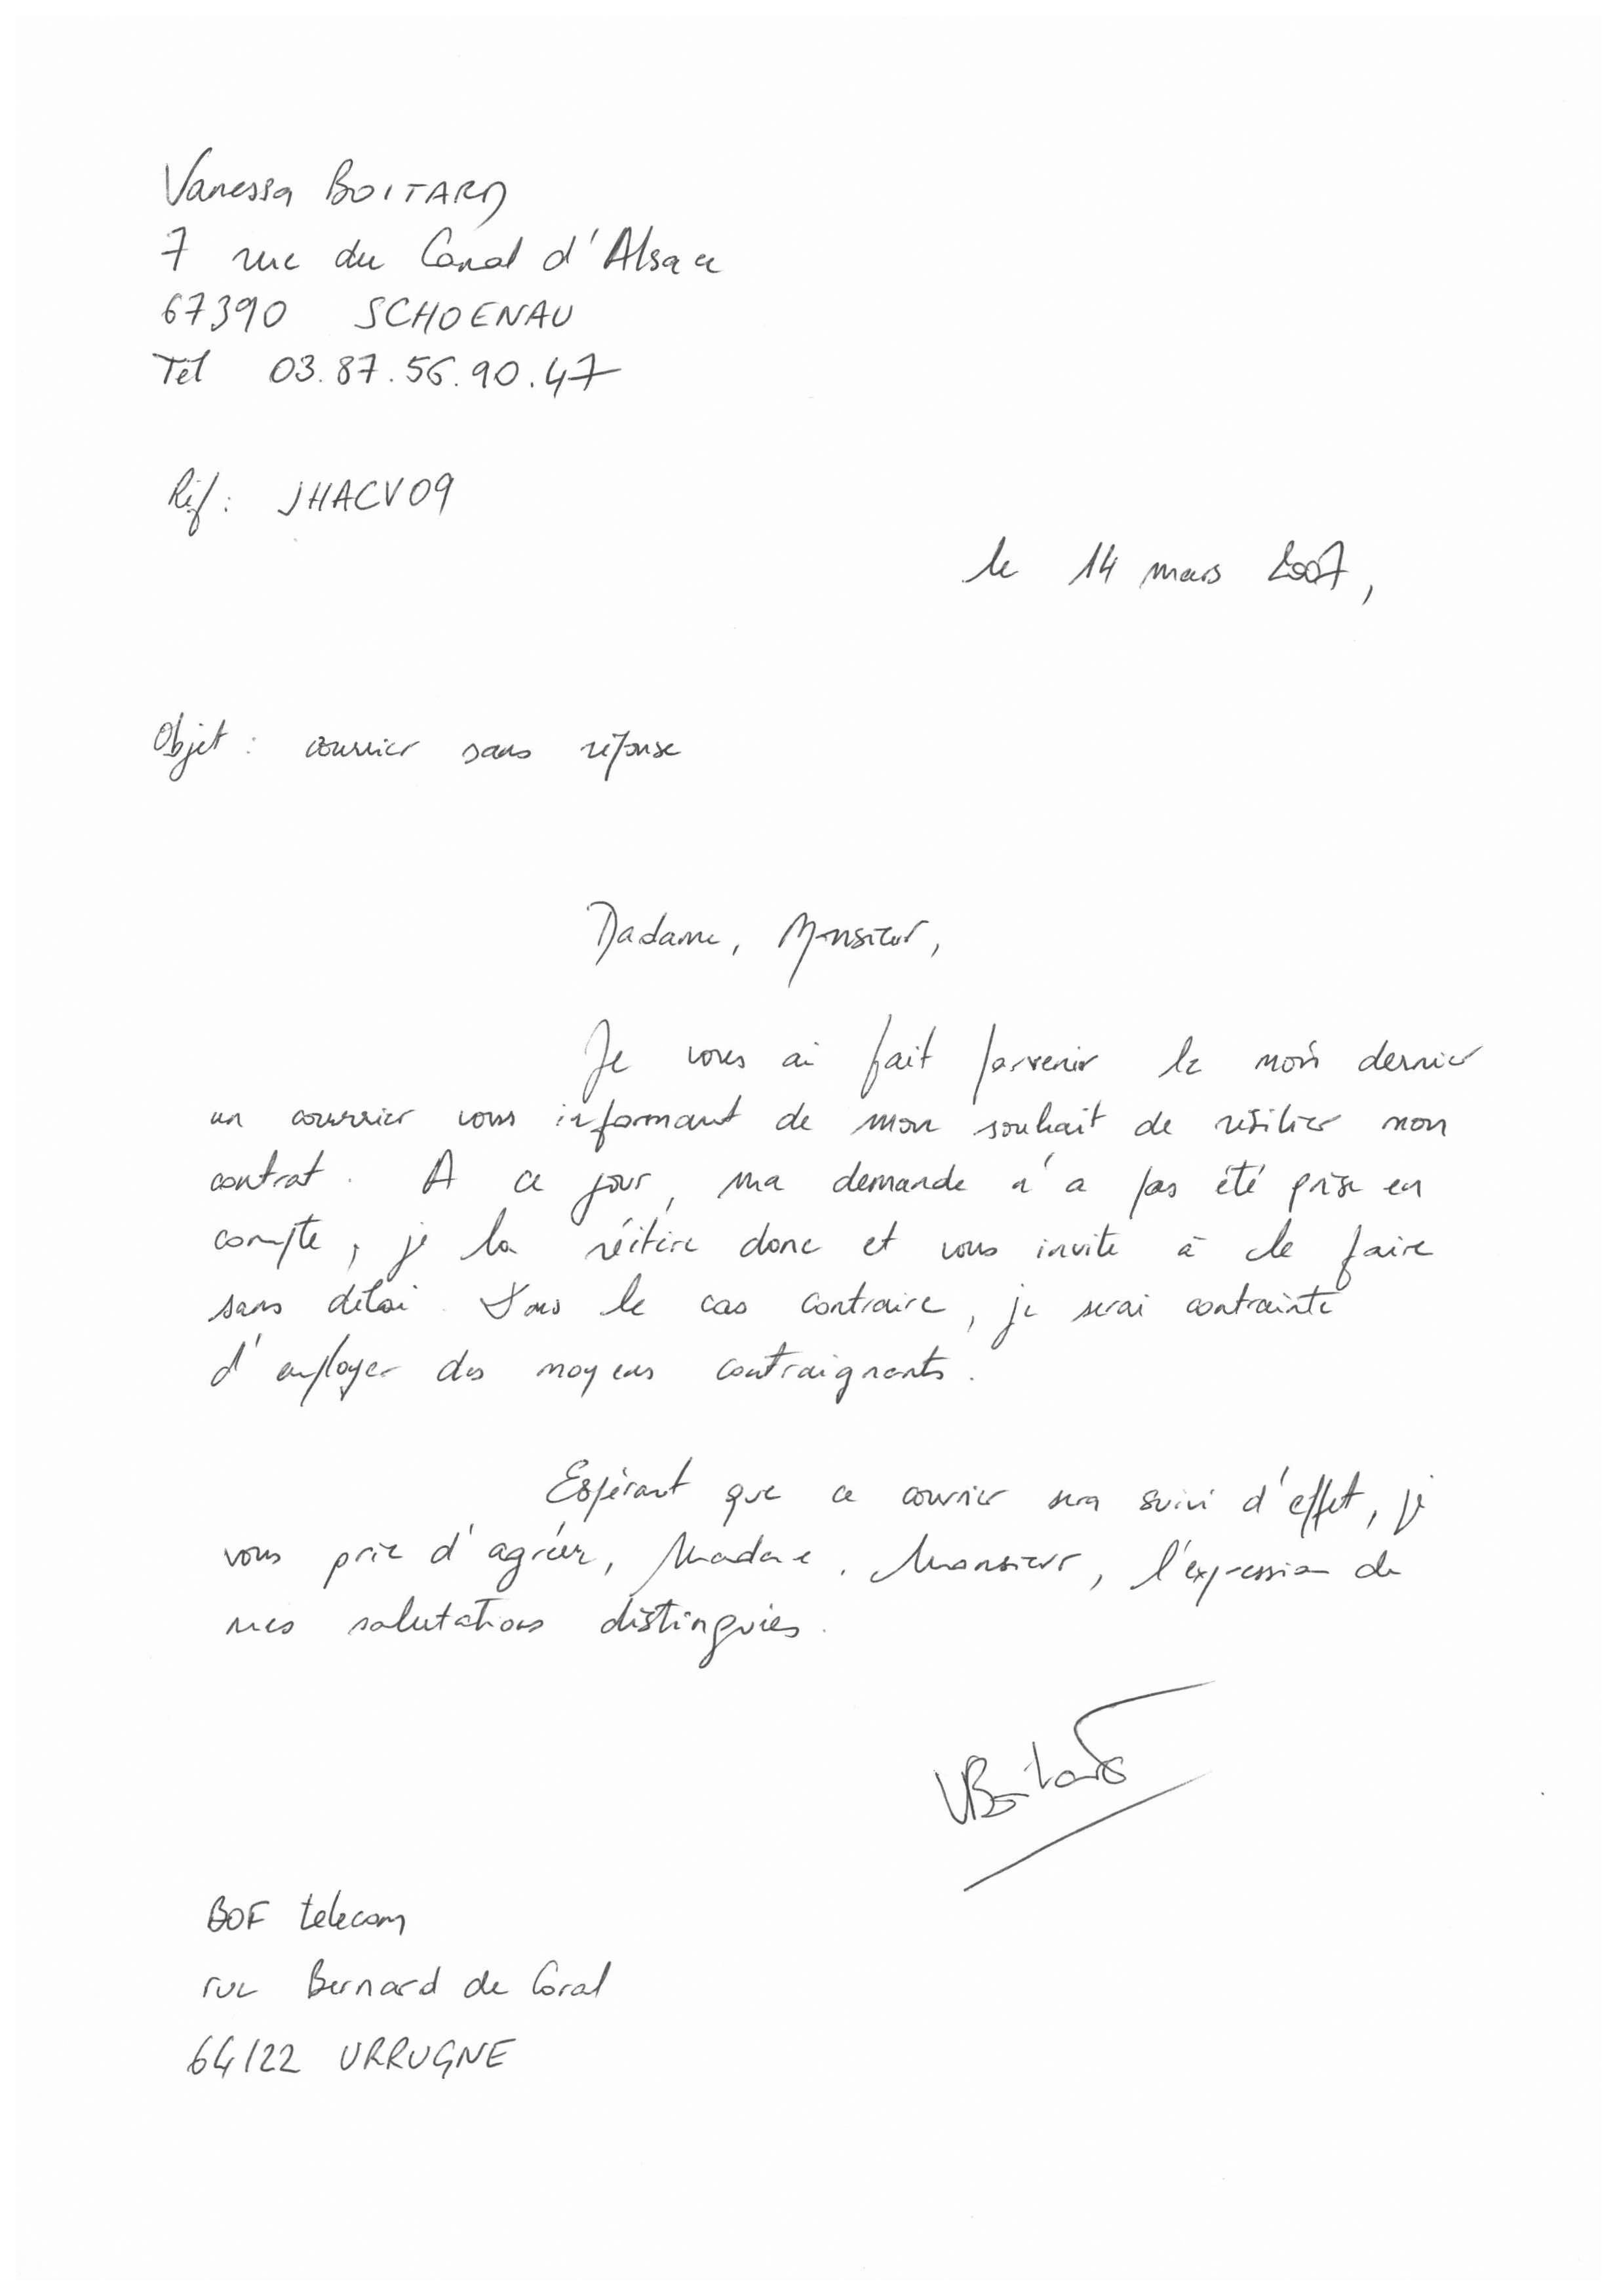 Vanessa BOITARD
7 rue du Canal d'Alsace
67390 SCHOENAU
Tél 03.87.56.90.47
Réf : JHACV09
le 14 mars 2007,
Objet : courrier sans réponse
Madame, Monsieur,
Je vous ai fait parvenir le mois dernier
un courrier vous informant de mon souhait de résilier mon
contrat. A ce jour, ma demande n'a pas été prise en
compte, je la réitère donc et vous invite à le faire
sans délai. Dans le cas contraire, je serai contrainte
d'employer des moyens contraignants.
Espérant que ce courrier sera suivi d'effet, je
vous prie d'agréer, Madame, Monsieur, l'expression de
mes salutations distinguées.
VBoitard
BOF telecom
rue Bernard de Coral
64122 URRUGNE